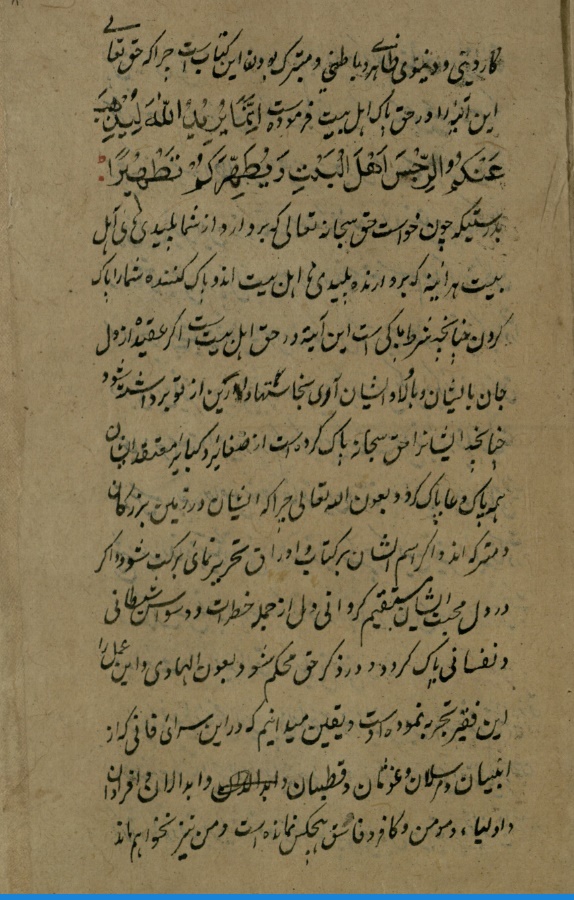 کار دینی و دنیوی ظاهر و باطنی و متبرک بودن این کتاب است چرا که حق تعالی
این آیه را در حق پاک اهل بیت فرموده است اِنَّمَا یُرِیْدُ اللهُ لِیُذْهِبَ
عَنْکُمُ الرِّجْسَ اَهْلَ الْبَیْتِ وَیُطَهِّرَکُمْ تَطْهِیْرًا
بدرستیکه چون خواست حق سبحانه تعالی که بردارد از شما پلیدی های اهل
بیت هرآئینه که بردارنده پلیدی ها اهل بیت اند و پاک کننده شما را پاک
کردن چنانچه شرط پاکی است این آیته در حق اهل بیت است اگر عقیده از دل
جان بایشان و بالاد ایشان آوی نجاستها از تو برداشته شود
چنانچه ایشانرا حق سبحانه پاک کرده است از صغائر و کبائر معتقد ایشان
همه پاک کرد بعون الله تعالی چرا که ایشان در زمین بزرگان
و متبرکه اند و اگر اسم ایشان بر کتاب و اوراق تحریر نمائی برکت شود و اگر
در دل محبت ایشان مستقیم گردانی دل از جمله خطرات و وسواس شیطانی
و نفسانی پاک گردد و در ذکر حق محکم شود بعون الهادی و این عمل را
این فقیر تجربه نموده است و یقین میدانیم که در این سرائ فانی که از
انبیان و مرسلان و غوثان و قطبان و ابدالان و افرادان
و اولیاء و مومن و کافر و فاسق هیچکس نمانده است و من نیز نخواهم ماند